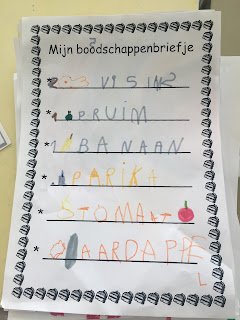 Mijn boodschappenbriefje
VIS
* PRUIM
* BANAAN
* PARIKA
* STOMAAT
* AARDAPPE
L